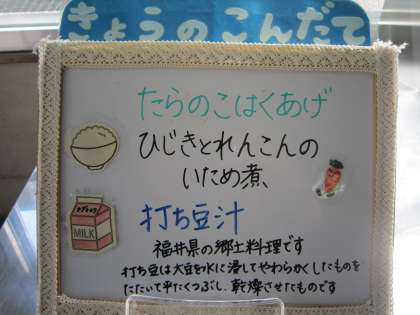 きょうのこんだて
たらのこはくあげ
ひじきとれんこんの
いため煮、
打ち豆汁
MILK
福井県の郷土料理です
打ち豆は大豆を水に浸してやわらかくしたものを
たたいて平たくつぶし、乾燥させたものです